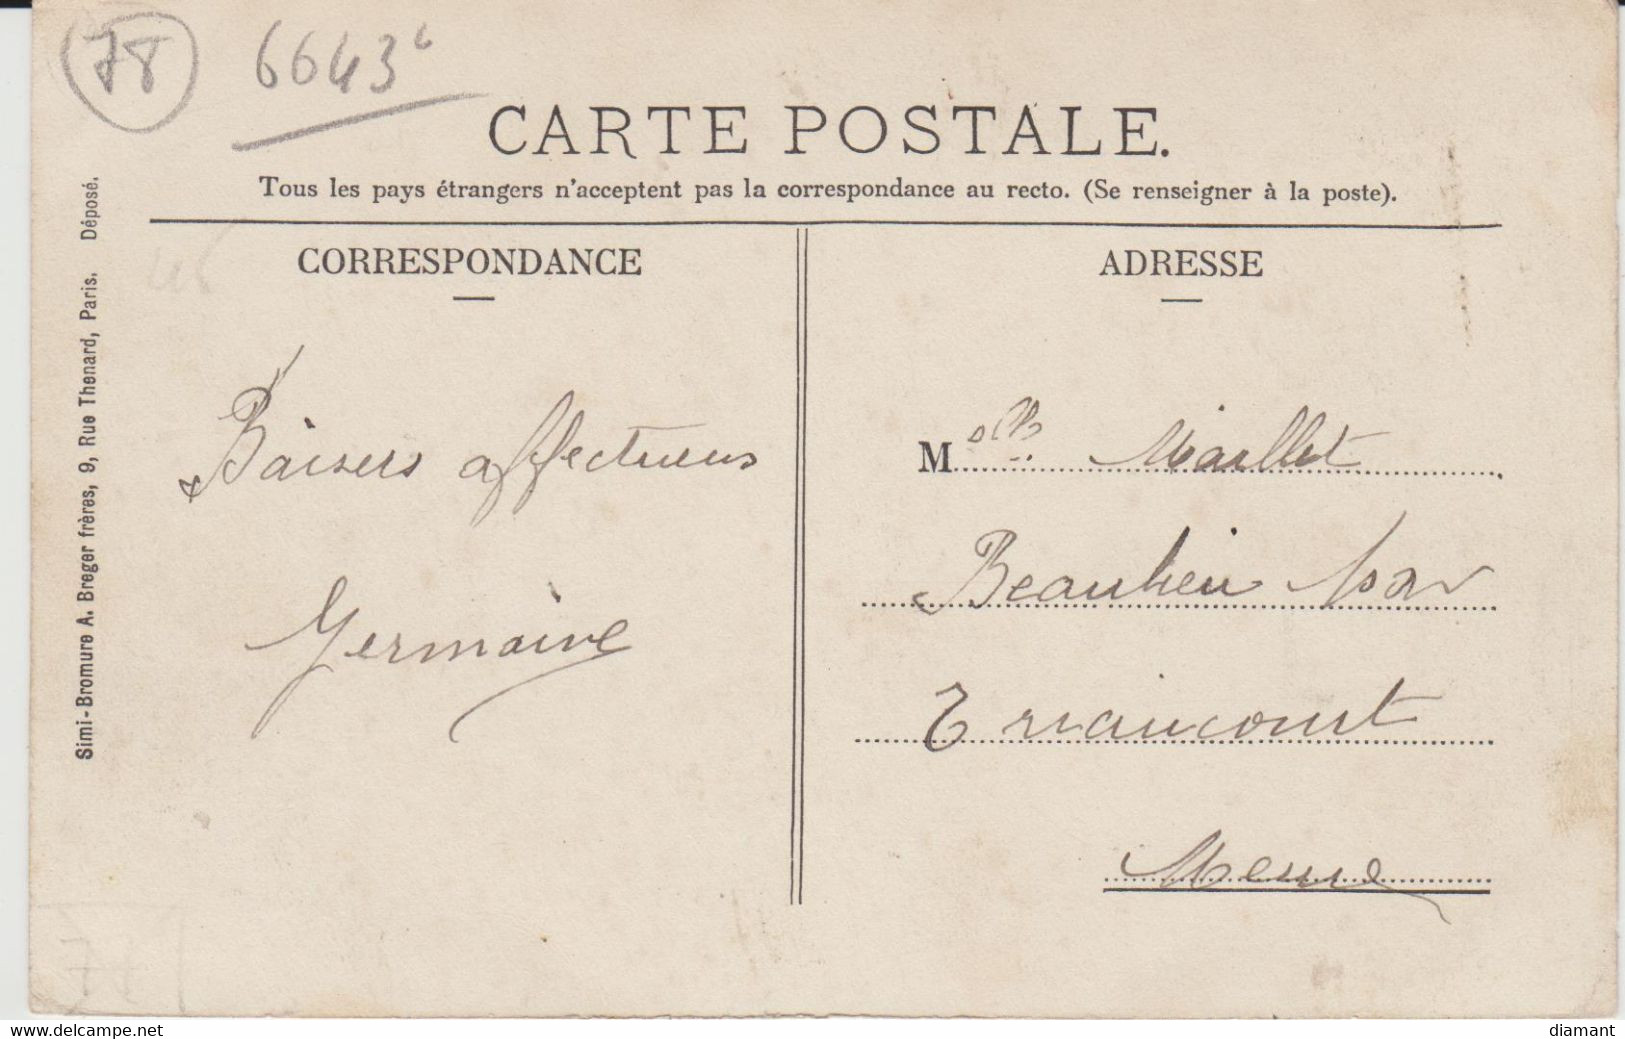 78 6643
CARTE POSTALE.
Tous les pays étrangers n'acceptent pas la correspondance au recto. (Se renseigner à la poste).
CORRESPONDANCE
Baisers affectueux
Germaine
ADRESSE
Melle Maillet
Beaulieu par
Triaucourt
Meuse
Simi-Bromure A. Breger frères, 9, Rue Thenard, Paris. Déposé.
www.delcampe.net
diamant